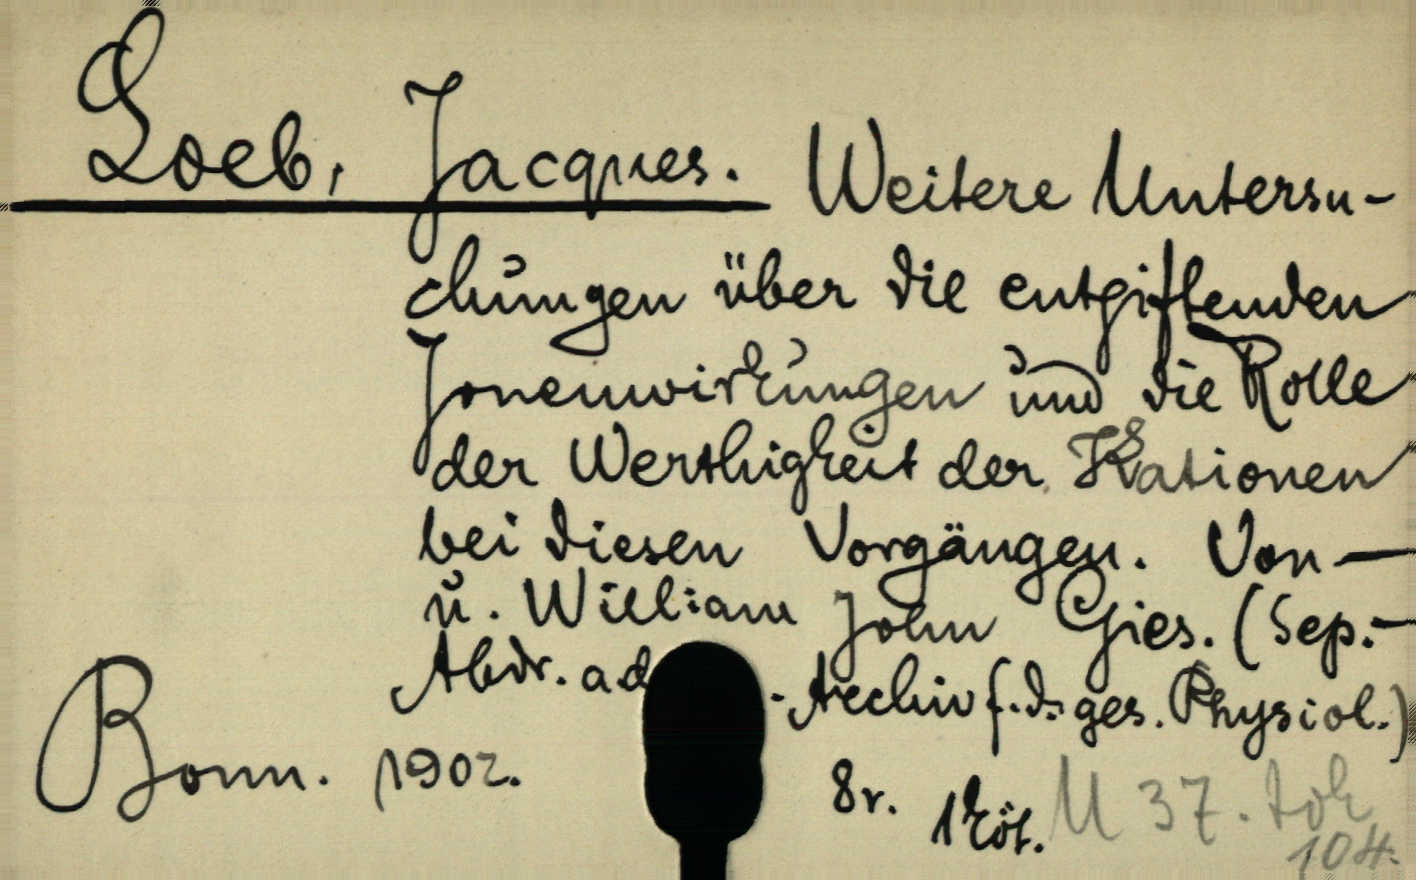 Loeb, Jacques. Weitere Untersu-
chungen über die entgiftenden
Jonenwirkungen und die Rolle
der Werthigkeit der Kationen
bei diesen Vorgängen. Von —
u. William John Gies. (Sep.-
Abdr. a. d. -Archiv f. d. ges. Physiol.)
Bonn. 1902. 8r. 1 köt. M 37. tok
104.